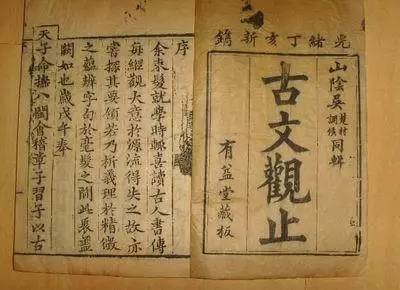 光緒丁亥新鐫
山陰吳楚材調侯同輯
古文觀止
有益堂藏板
序
余束髮就學時輒喜讀古人書傳
每縱觀大意於源流得失之故亦
嘗探其要領若乃析義理於精微
之蘊辨字句於毫髮之間此衷蓋
闕如也歲戊午奉
天子命撫八閩會稽章子習子以古